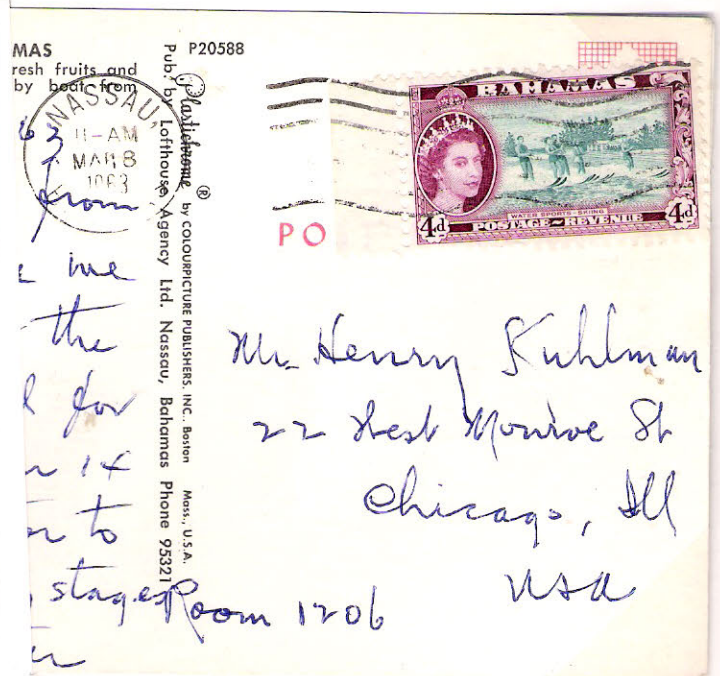 MAS
resh fruits and
by boat from
P20588
NASSAU,
11-AM
MAR 8
1963
63
from
me
the
for
14
to
stages
Plastichrome ® by COLOURPICTURE PUBLISHERS, INC., Boston Mass., U.S.A.
Pub. by Lofthouse Agency Ltd. Nassau, Bahamas Phone 95321
PO
BAHAMAS
WATER SPORTS - SKI-ING
4d POSTAGE REVENUE 4d
Mr. Henry Kuhlman
22 West Monroe St
Chicago, Ill
USA
Room 1206